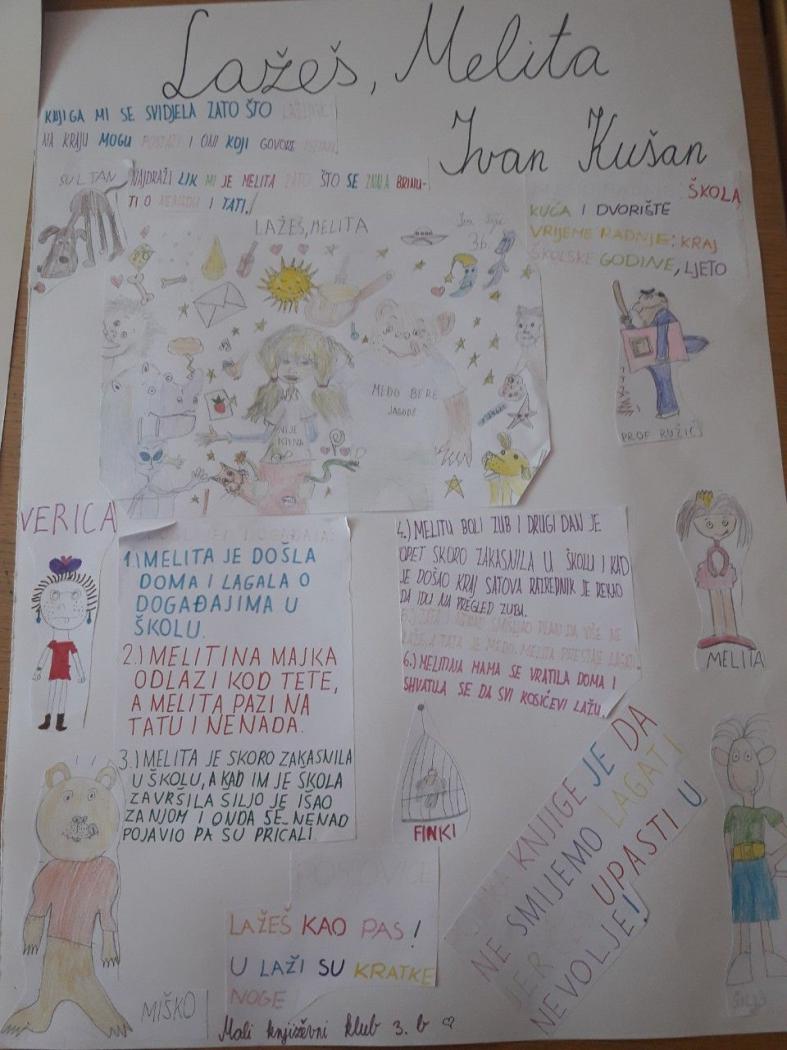 Lažeš, Melita
Ivan Kušan
KNJIGA MI SE SVIDJELA ZATO ŠTO
NA KRAJU MOGU POSTATI I ONI KOJI GOVORE
SULTAN
NAJDRAŽI LIK MI JE MELITA ZATO ŠTO SE ZNALA BRINU-
TI O NENADU I TATI.
ŠKOLA,
KUĆA I DVORIŠTE
VRIJEME RADNJE: KRAJ
ŠKOLSKE GODINE, LJETO
LAŽEŠ, MELITA
3b.
MEDO BERE
JAGODE
NIJE
PROF RUŽIĆ
VERICA
1.) MELITA JE DOŠLA
DOMA I LAGALA O
DOGAĐAJIMA U
ŠKOLU.
2.) MELITINA MAJKA
ODLAZI KOD TETE,
A MELITA PAZI NA
TATU I NENADA.
3.) MELITA JE SKORO ZAKASNILA
U ŠKOLU, A KAD IM JE ŠKOLA
ZAVRŠILA ŠILJO JE IŠAO
ZA NJOM I ONDA SE NENAD
POJAVIO PA SU PRIČALI.
4.) MELITU BOLI ZUB I DRUGI DAN JE
OPET SKORO ZAKASNILA U ŠKOLU I KAD
JE DOŠAO KRAJ SATOVA RAZREDNIK JE REKAO
DA IDU NA PREGLED ZUBA.
5.) TATA I NENAD SMISLILI PLAN DA VIŠE NE
LAŽE, A TATA JE MEDO. MELITA PRESTAJE LAGATI.
6.) MELITINA MAMA SE VRATILA DOMA I
SHVATILA SE DA SVI KOSIĆEVI LAŽU.
MELITA
FINKI
MIŠKO
ŠILJO
POSLOVICE
LAŽEŠ KAO PAS!
U LAŽI SU KRATKE
NOGE
KNJIGE JE DA
NE SMIJEMO LAGATI
JER UPASTI U
NEVOLJE!
Mali književni klub 3. b